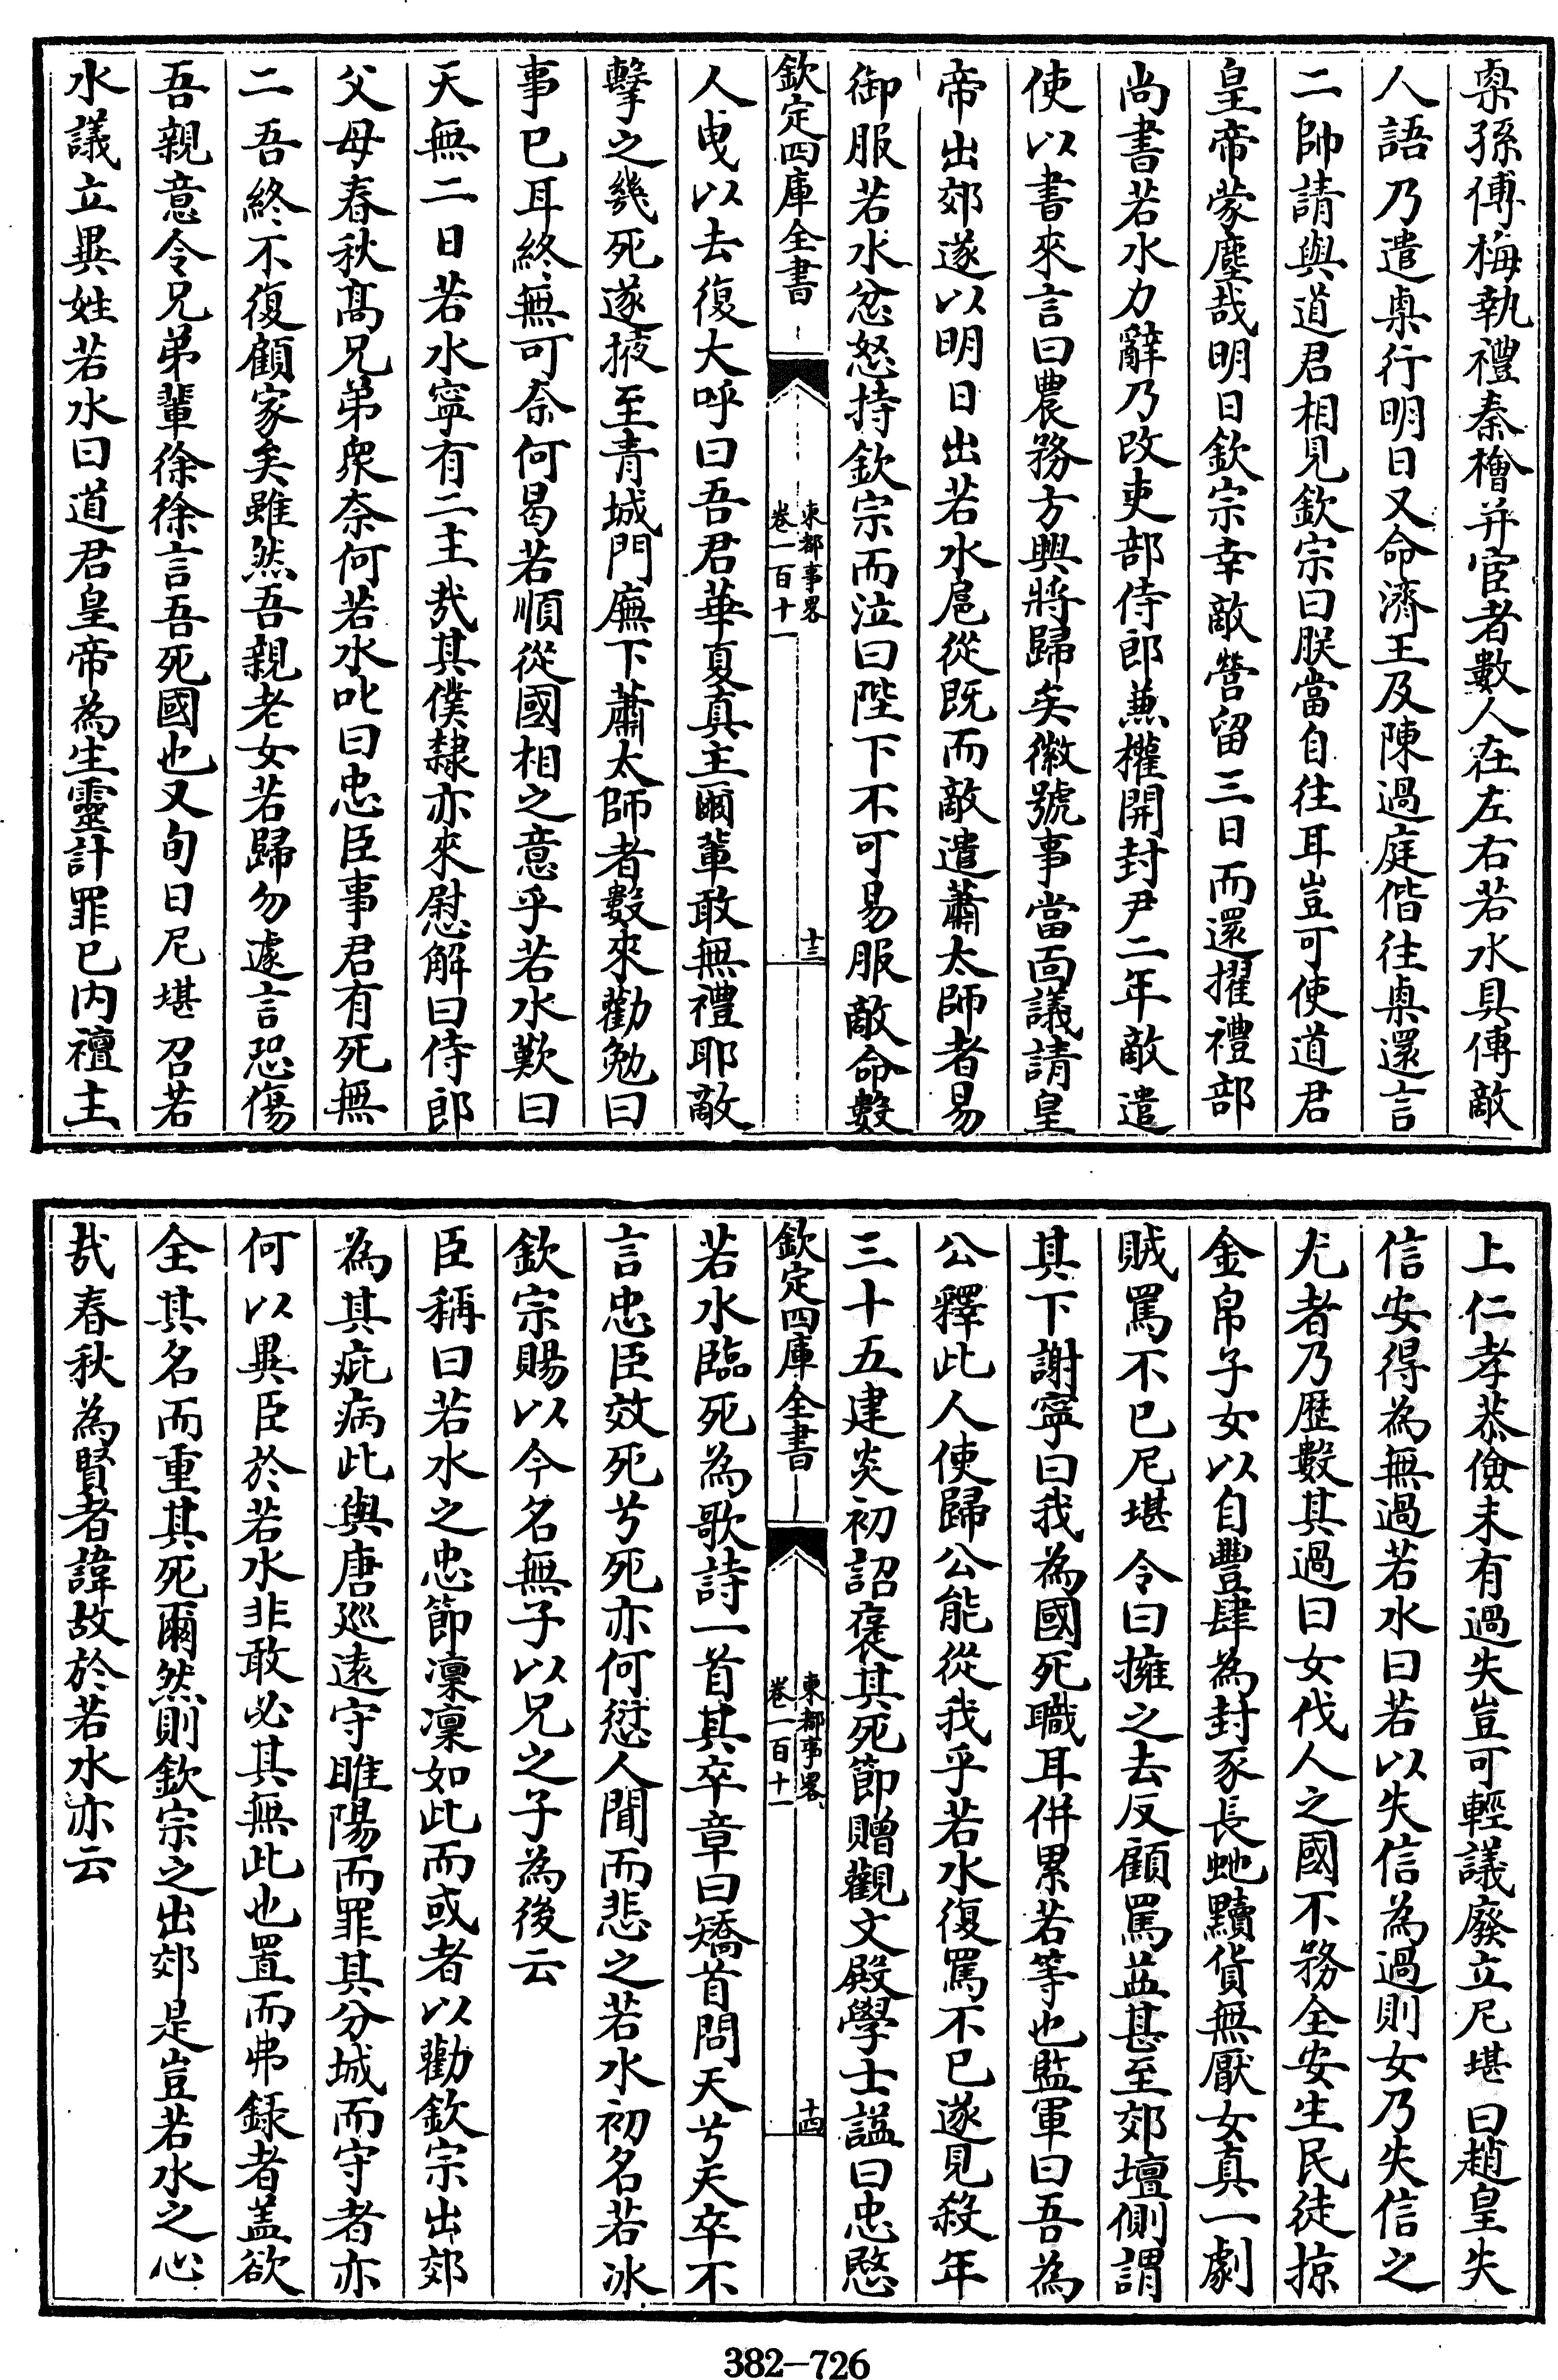 㮚孫傅梅執禮秦檜并宦者數人在左右若水具傳敵
人語乃遣㮚行明日又命濟王及陳過庭偕往㮚還言
二帥請與道君相見欽宗曰朕當自往耳豈可使道君
皇帝蒙塵哉明日欽宗幸敵營留三日而還擢禮部
尚書若水力辭乃改吏部侍郎兼權開封尹二年敵遣
使以書來言曰農務方興將歸矣徽號事當面議請皇
帝出郊遂以明日出若水扈從既而敵遣蕭太師者易
御服若水忿怒持欽宗而泣曰陛下不可易服敵命數
欽定四庫全書
東都事畧
卷一百十一
十三
人曵以去復大呼曰吾君華夏真主爾輩敢無禮耶敵
擊之幾死遂掖至青城門廡下蕭太師者數來勸勉曰
事已耳終無可奈何曷若順從國相之意乎若水歎曰
天無二日若水寧有二主哉其僕隸亦來慰解曰侍郎
父母春秋髙兄弟衆奈何若水叱曰忠臣事君有死無
二吾終不復顧家矣雖然吾親老女若歸勿遽言恐傷
吾親意令兄弟輩徐徐言吾死國也又旬日尼堪召若
水議立異姓若水曰道君皇帝為生靈計罪已内禪主
上仁孝恭儉未有過失豈可輕議廢立尼堪曰趙皇失
信安得為無過若水曰若以失信為過則女乃失信之
尤者乃歴數其過曰女伐人之國不務全安生民徒掠
金帛子女以自豐肆為封豕長虵黷貨無厭女真一劇
賊罵不已尼堪令曰擁之去反顧罵益甚至郊壇側謂
其下謝寧曰我為國死職耳併累若等也監軍曰吾為
公釋此人使歸公能從我乎若水復罵不已遂見殺年
三十五建炎初詔褒其死節贈觀文殿學士諡曰忠愍
欽定四庫全書
東都事畧
卷一百十一
十四
若水臨死為歌詩一首其卒章曰矯首問天兮天卒不
言忠臣效死兮死亦何愆人聞而悲之若水初名若冰
欽宗賜以今名無子以兄之子為後云
臣稱曰若水之忠節凜凜如此而或者以勸欽宗出郊
為其疵病此與唐廵逺守睢陽而罪其分城而守者亦
何以異臣於若水非敢必其無此也置而弗録者葢欲
全其名而重其死爾然則欽宗之出郊是豈若水之心
哉春秋為賢者諱故於若水亦云
382-726